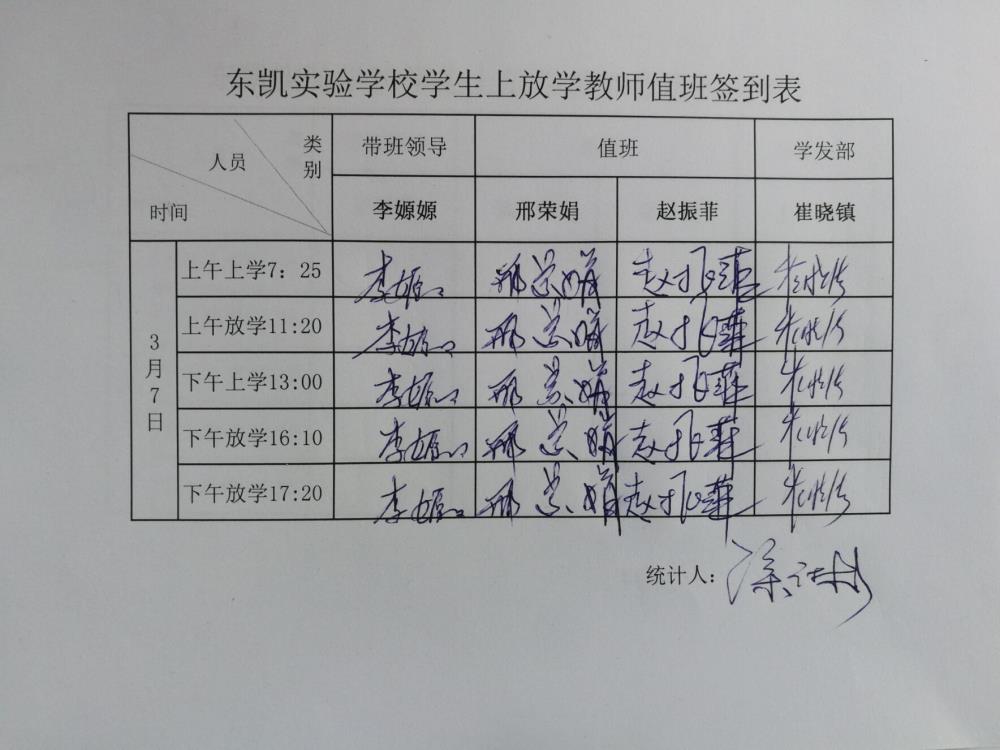 东凯实验学校学生上放学教师值班签到表
人员 类别 带班领导 值班 学发部
时间 李嫄嫄 邢荣娟 赵振菲 崔晓镇
3月7日
上午上学7：25 李嫄 邢荣娟 赵振菲
上午放学11:20 李嫄 邢荣娟 赵振菲
下午上学13:00 李嫄 邢荣娟 赵振菲
下午放学16:10 李嫄 邢荣娟 赵振菲
下午放学17:20 李嫄 邢荣娟 赵振菲
统计人：